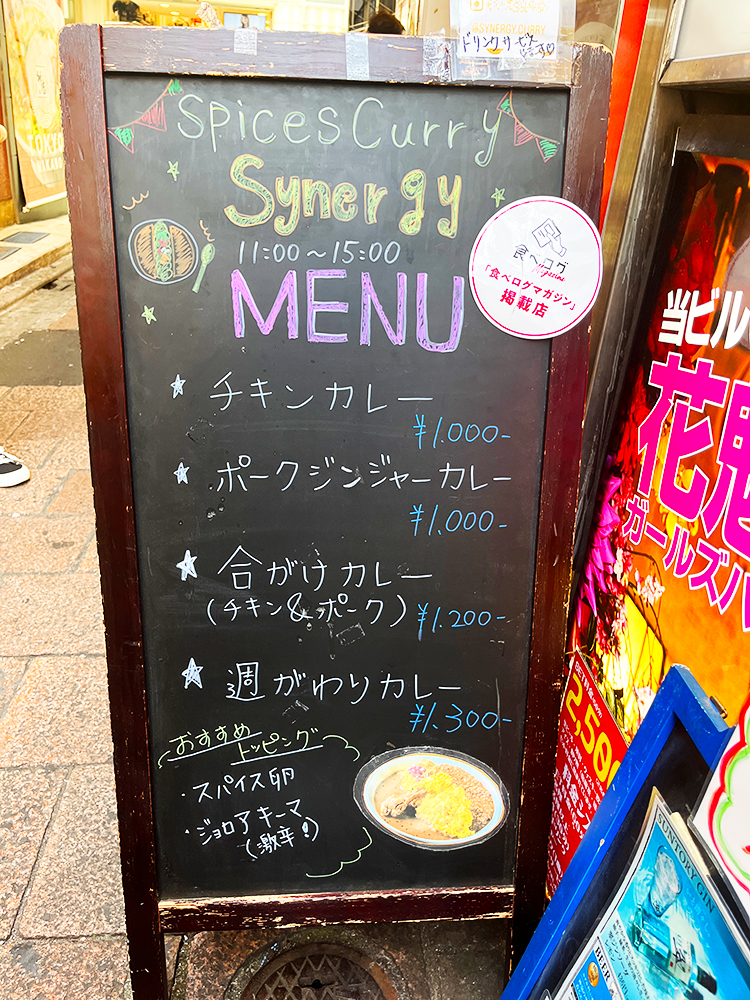 @SYNERGY.CURRY
Spices Curry
Synergy
11:00～15:00
MENU
食べログ
Magazine
「食べログマガジン」
掲載店
★ チキンカレー
¥1.000-
★ ポークジンジャーカレー
¥1.000-
★ 合がけカレー
(チキン&ポーク) ¥1.200-
★ 週がわりカレー
¥1.300-
おすすめ
トッピング
・スパイス卵
・ジョロアキーマ
(激辛!)
当ビル
花魁
ガールズバ
2,50
SUNTORY GIN
TOKYO